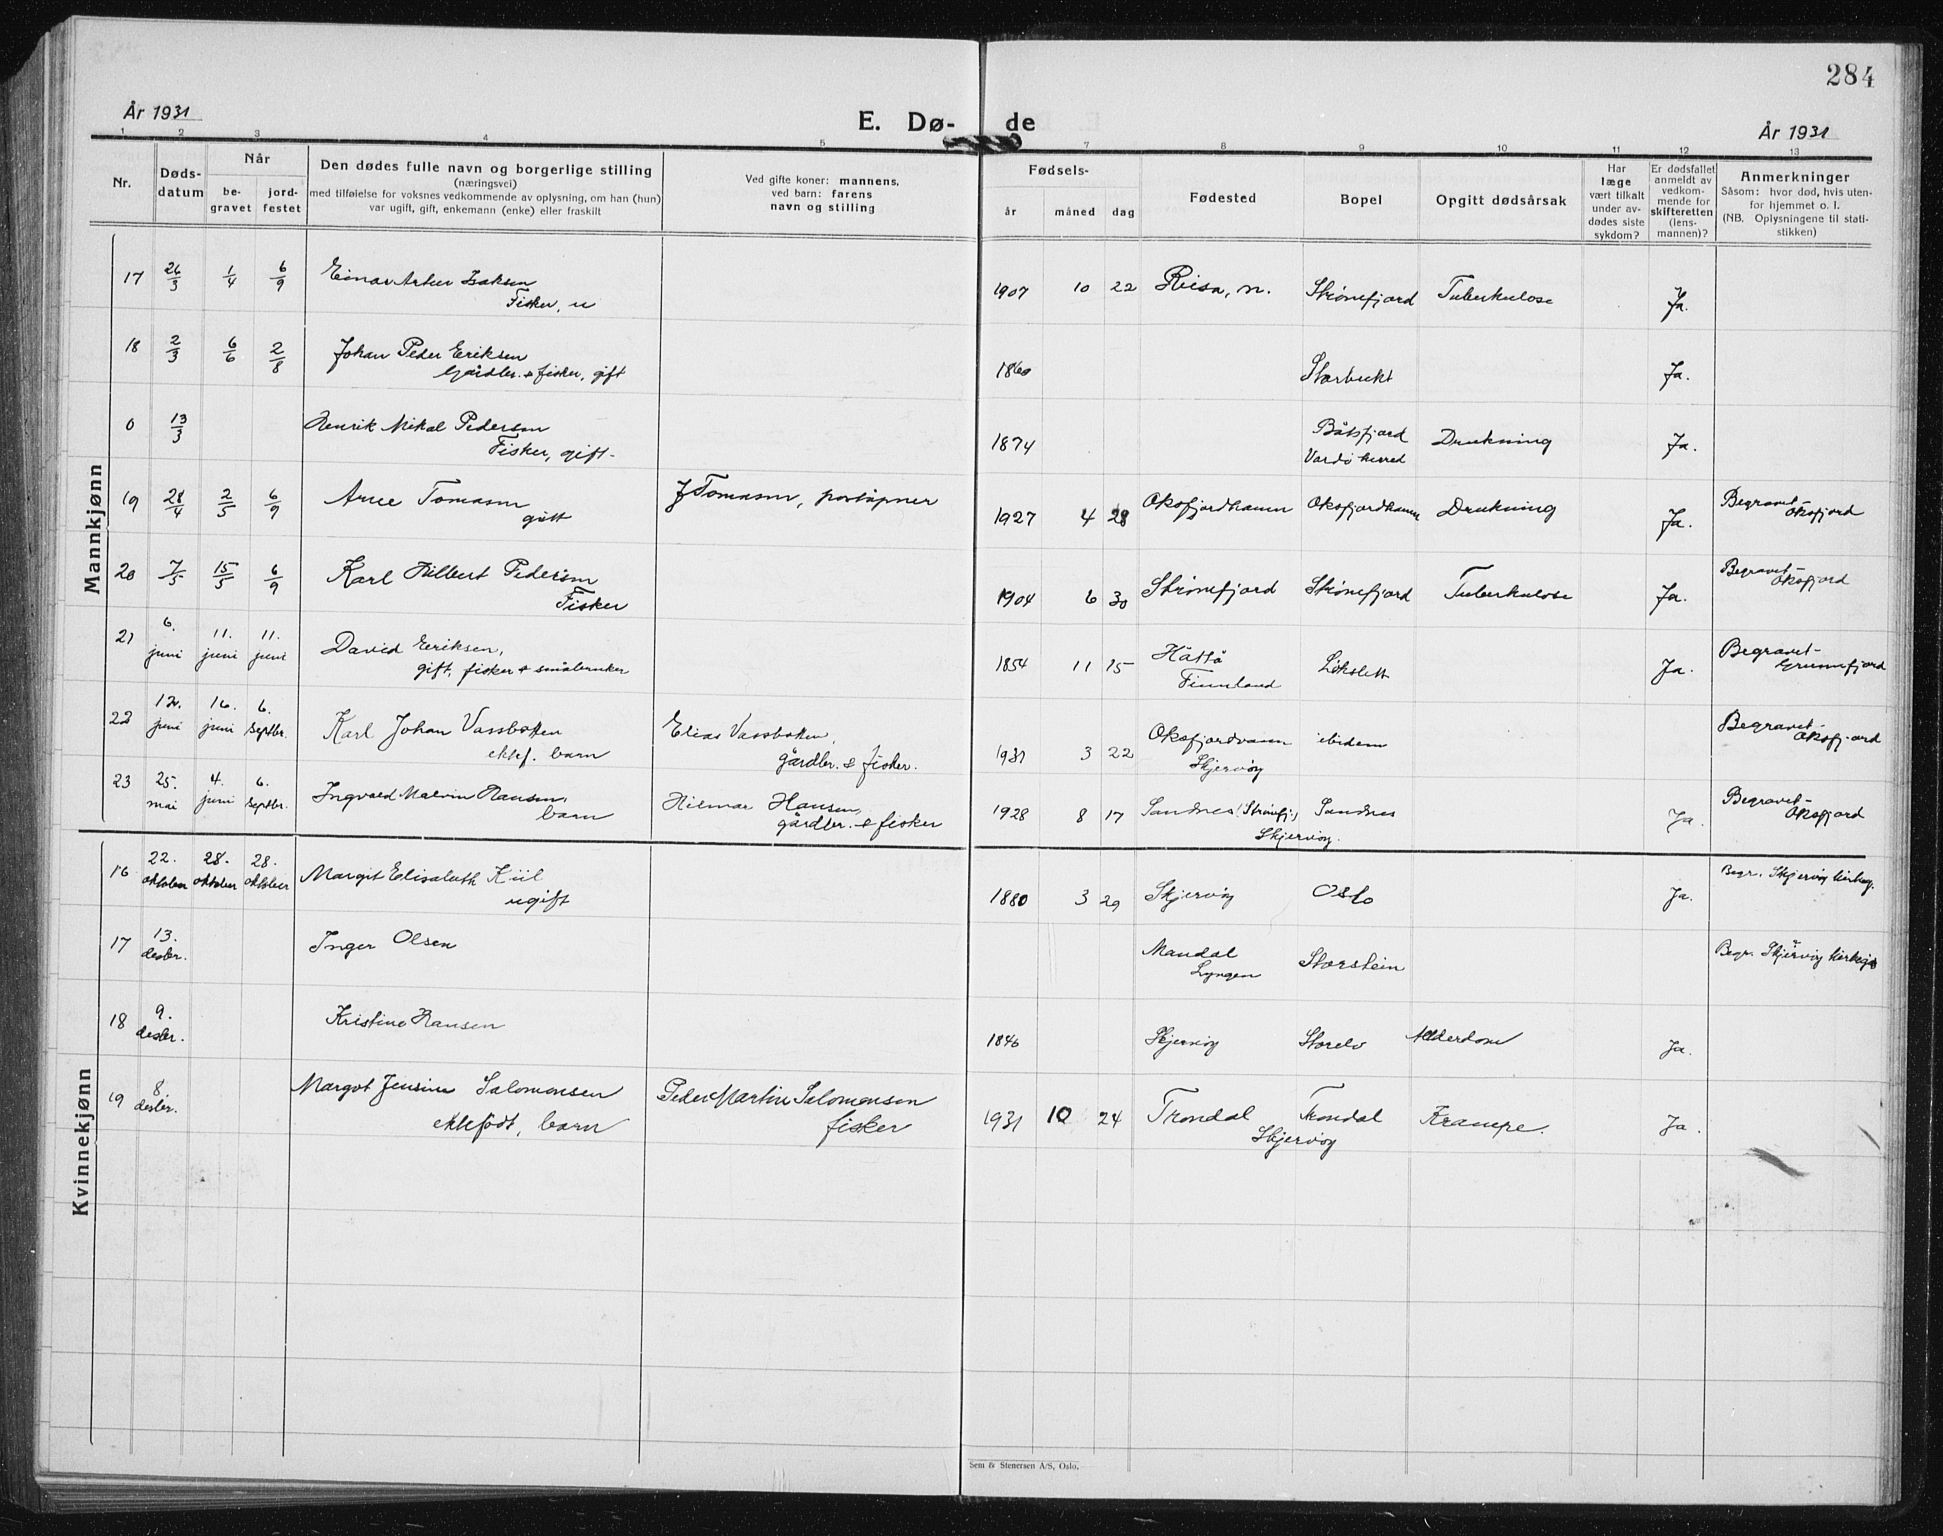 284
År 1931
E. Dø- de
År 1931
1 2 3 4 5 7 8 9 10 11 12 13
Nr.
Døds-
datum
Når
be-
gravet
jord-
festet
Den dødes fulle navn og borgerlige stilling
(næringsvei)
med tilføielse for voksnes vedkommende av oplysning, om han (hun)
var ugift, gift, enkemann (enke) eller fraskilt
Ved gifte koner: mannens,
ved barn: farens
navn og stilling
Fødsels-
år måned dag
Fødested
Bopel
Opgitt dødsårsak
Har
læge
vært tilkalt
under av-
dødes siste
sykdom?
Er dødsfallet
anmeldt av
vedkom-
mende for
skifteretten
(lens-
mannen)?
Anmerkninger
Såsom: hvor død, hvis uten-
for hjemmet o. l.
(NB. Oplysningene til stati-
stikken)
Mannkjønn
17 26/3 1/4 6/9 Einar Artur Isaksen 1907 10 22 Reisa, n. Strømfjord Tuberkulose Ja.
Fisker, u
18 2/3 6/6 2/8 Johan Peder Eriksen 1860 Storbukt Ja.
Gårdbr. & fisker, gift
0 13/3 Henrik Mikal Pedersen 1874 Båtsfjord Drukning Ja.
Fisker, gift. Vardø herred
19 28/4 2/5 6/9 Arne Tomasen J Tomasen, poståpner 1927 4 28 Oksfjordhamn Oksfjordhamn Drukning Ja. Begravet
gutt Oksfjord
20 7/5 15/5 6/9 Karl Hilbert Pedersen 1904 6 30 Strømfjord Strømfjord Tuberkulose Ja. Begravet
Fisker Oksfjord
21 6. juni 11. juni 11. juni David Eriksen, 1854 11 15 Hättä Lökslett Ja. Begravet
gift, fisker & småbruker Finnland Grunnfjord
22 12. juni 16. juni 6. Septbr. Karl Johan Vassbotten Elias Vassbotten, 1931 3 22 Oksfjordvann ibidem Begravet
ektef. barn gårdbr. & fisker. Skjervøy Oksfjord
23 25. mai 4. juni 6. Septbr. Ingvald Malvin Hansen, Hilmar Hansen, 1928 8 17 Sandnes (Strømfj.) Sandnes Ja. Begravet
barn gårdbr. & fisker Skjervøy. Oksfjord
Kvinnekjønn
16 22. oktober 28. oktober 28. oktober Margit Elisabeth Kiil 1880 3 29 Skjervøy Oslo Ja. Begr. Skjervøy kirkeg.
ugift
17 13. desbr. Inger Olsen Mandal Storstein Begr. Skjervøy kirkeg.
Lyngen
18 9. desbr. Kristine Hansen 1846 Skjervøy Storelv Allderdom Ja.
19 8. desbr. Margot Jensine Salomonsen Peder Martin Salomonsen 1931 10 24 Trondal Trondal Krampe. Ja.
ektefødt, barn fisker Skjervøy
Sem & Stenersen A/S, Oslo.